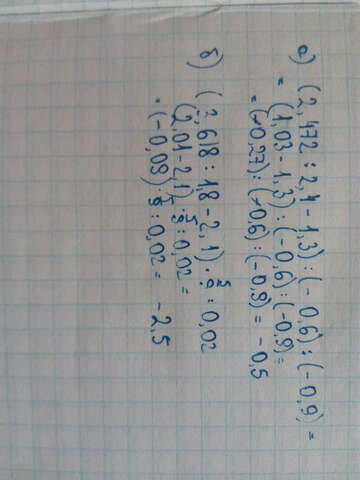 а) (2,472 : 2,4 - 1,3) : (-0,6) : (-0,9) =
= (1,03 - 1,3) : (-0,6) : (-0,9) =
= (-0,27) : (-0,6) : (-0,9) = -0,5
б) (2,618 : 1,8 - 2,1) · 5/9 : 0,02
(2,01 - 2,1) · 5/9 : 0,02 =
= (-0,09) · 5/9 : 0,02 = -2,5